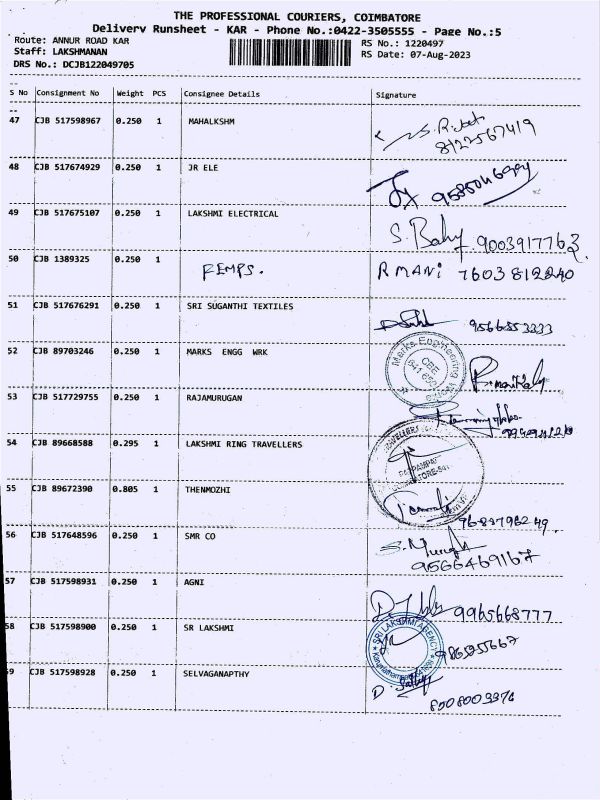 THE PROFESSIONAL COURIERS, COIMBATORE
Delivery Runsheet - KAR - Phone No.:0422-3505555 - Page No.:5
Route: ANNUR ROAD KAR RS No.: 1220497
Staff: LAKSHMANAN RS Date: 07-Aug-2023
DRS No.: DCJB122049705
S No Consignment No Weight PCS Consignee Details Signature
47 CJB 517598967 0.250 1 MAHALKSHM
8122567419
48 CJB 517674929 0.250 1 JR ELE
49 CJB 517675107 0.250 1 LAKSHMI ELECTRICAL
S. Baby 9003917763
50 CJB 1389325 0.250 1 FEMPS. R MANI 7603812240
51 CJB 517676291 0.250 1 SRI SUGANTHI TEXTILES
9566553333
52 CJB 89703246 0.250 1 MARKS ENGG WRK
Marks Engineering
CBE
53 CJB 517729755 0.250 1 RAJAMURUGAN
54 CJB 89668588 0.295 1 LAKSHMI RING TRAVELLERS
55 CJB 89672390 0.805 1 THENMOZHI
9683796249.
56 CJB 517648596 0.250 1 SMR CO
9566469167
57 CJB 517598931 0.250 1 AGNI
9965668777
58 CJB 517598900 0.250 1 SR LAKSHMI
SRI LAKSHMI AGENCY
9865955667
59 CJB 517598928 0.250 1 SELVAGANAPTHY